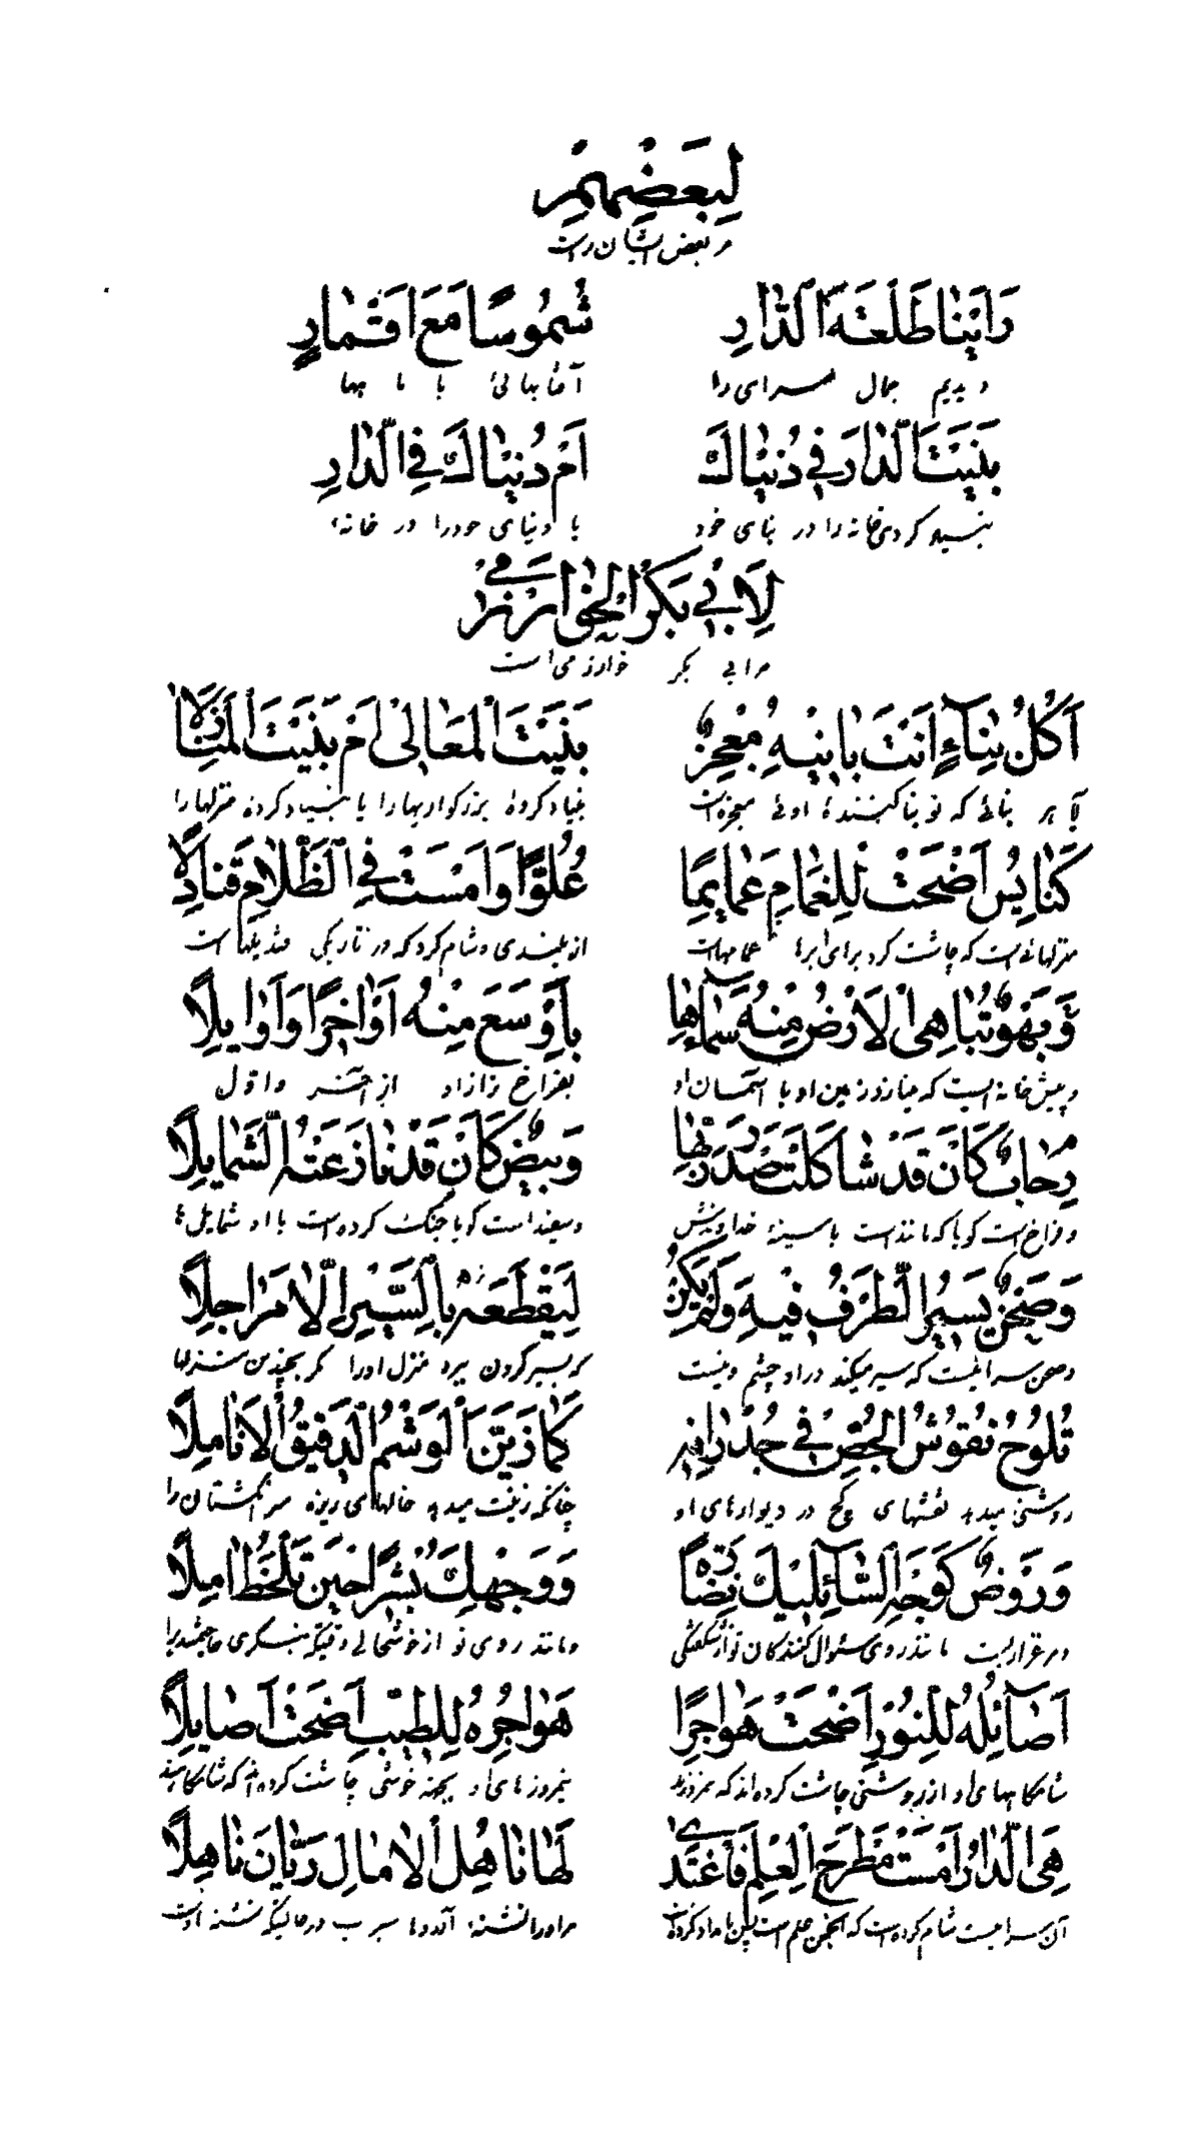 لِبَعْضِهِمْ
مر بعض ایشان راست
رَاَيْنَا طَلْعَةَ الدَّارِ شُمُوسًا مَعَ اَقْمَارٍ
دیدیم جمال سرای را آفتابهائی با ماهها
بَنَيْتَ الدَّارَ فِي دُنْيَاكَ اَمْ دُنْيَاكَ فِي الدَّارِ
بنیاد کردی خانه را در دنیای خود یا دنیای خود را در خانه
لِاَبِي بَكْرِ الْخَوَارَزْمِي
مر ابی بکر خوارزمی است
اَكُلُّ بِنَآءٍ اَنْتَ بَانِيهِ مُعْجِزٌ بَنَيْتَ الْمَعَالِى اَمْ بَنَيْتَ الْمَنَازِلَا
آیا هر بنائی که تو بنا کننده اوئی معجزه است بنیاد کردی بزرگواریها را یا بنیاد کردی منزلها را
كَنَايِسُ اَضْحَتْ لِلْغَمَامِ عَمَايِمًا عُلُوًّا وَاَمْسَتْ فِي الظَّلَامِ قَنَادِلَا
منزلهائی است که چاشت کرد برای ابر عمامهاست از بلندی و شام کرد که در تاریکی قندیلها است
وَبَهْوٌ تُبَاهِي الْاَرْضُ مِنْهُ سَمَآءَهَا بِاَوْسَعَ مِنْهُ اَوَاخِرًا وَاَوَايِلَا
و پیش خانه ایست که مینازد زمین او با آسمان او بفراخ تر از او از آخر و اوّل
رِحَابٌ كَاَنْ قَدْ شَاكَلَتْ صَدْرَ رَبِّهَا وَبِيضٌ كَاَنْ قَدْ نَازَعَتْهُ الشَّمَايِلَا
و فراخ است گویا که مانند است با سینه خداوندش و سفید است گویا جنگ کرده است با او شمایل
وَصَحْنٌ يَسِيرُ الطَّرْفُ فِيهِ وَلَمْ يَكُنْ لِيَقْطَعَهُ بِالسَّيْرِ اِلَّا مَرَاحِلَا
و صحن سرائیست که سیر میکند در او چشم و نیست که بسیر کردن ببرد منزل او را مگر بچندین منزلها
تَلُوحُ نُقُوشُ الْجِصِّ فِي جُدْرَانِهِ كَمَا زَيَّنَ الْوَشْمُ الدَّقِيقُ الْاَنَامِلَا
روشنی میدهد نقشهای گچ در دیوارهای او چنانکه زینت میدهد خالهای ریزه سر انگشتان را
وَرَوْضٌ كَوَجْهِ السَّآئِلِيكَ نَضْرَةً وَوَجْهِكَ بِشْرًا حِينَ تَلْحَظُ امِلًا
و مرغزاریست مانند روی سئوال کنندگان تو از شکفتگی و مانند روی تو از خوشحالی وقتیکه بنگری
اَصَآئِلُهُ لِلنُّورِ اَضْحَتْ هَوَاجِرًا هَوَاجِرُهُ لِلطِّيبِ اَضْحَتْ اَصَايِلَا
شامگاههای او از روشنی چاشت کرده اند که نیمروزند نیمروزهای او بجهة خوشی چاشت کرده اند که شامگاهند
هِيَ الدَّارُ اَمْسَتْ مَطْرَحَ الْعِلْمِ فَاغْتَدٰى لَهَا نَاهِلُ الْاٰمَالِ رَيَّانَ نَاهِلَا
آن سرائیست شام کرده است که انجمن علم است پس بامداد کرده است مر او را تشنه آرزوها سیراب در حالیکه تشنه است